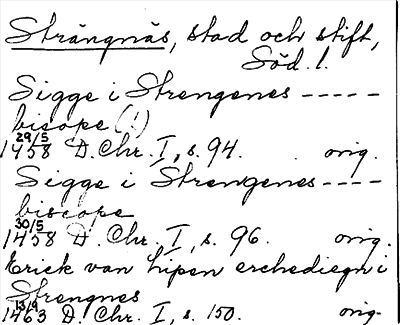 Strängnäs, stad och stift,
Söd. l.
Sigge i Strengenes -----
biscope (!)
29/5
1458 D. Chr. I, s. 94. orig.
Sigge i Strengenes ----
biscope
30/5
1458 D. Chr. I, s. 96. orig.
Erick van Lipen erchediegn i
Strengnes
13/9
1463 D. Chr. I, s. 150. orig.